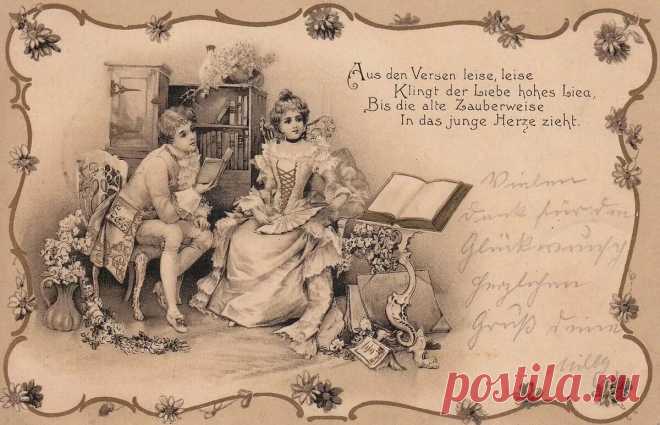 Aus den Versen leise, leise
Klingt der Liebe hohes Lied,
Bis die alte Zauberweise
In das junge Herze zieht.
Vielen
dank für den
Glückwunsch
herzlichen
Gruß deine
Milly
postila.ru